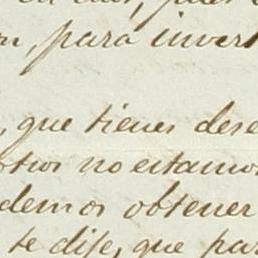 para invers
, que tienes dese
otros no estamos
demos obtener
te dije, que par